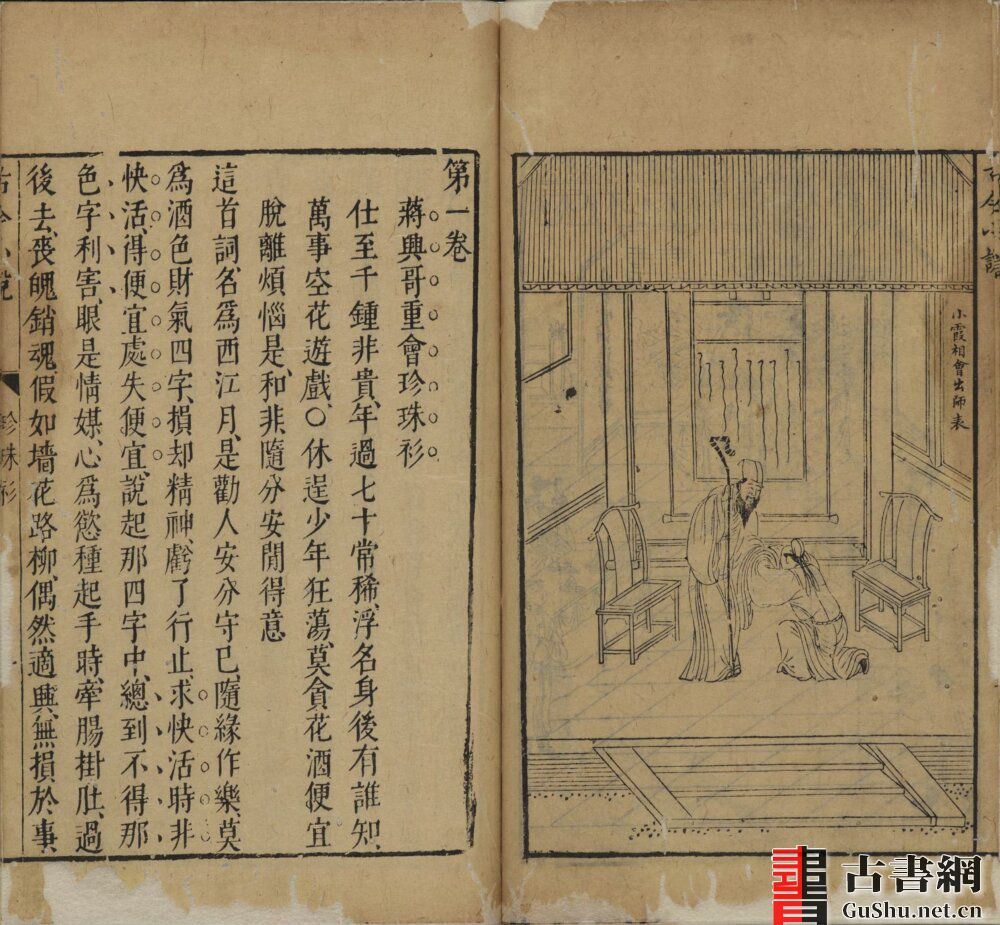 古今小說
小霞相會出師表
第一卷
蔣興哥重會珍珠衫
仕至千鍾非貴、年過七十常稀、浮名身後有誰知、
萬事空花遊戲、〇休逞少年狂蕩、莫貪花酒便宜
脫離煩惱是和非、隨分安閒得意
這首詞、名爲西江月、是勸人安分守已、隨緣作樂、莫
爲酒色財氣四字、損却精神、虧了行止、求快活時非
快活、得便宜處失便宜、說起那四字中、總到不得那
色字利害、眼是情媒、心爲慾種、起手時、牽腸掛肚、過
後去、喪魄銷魂、假如墻花路柳、偶然適興、無損於事、
古今小說
珍珠衫
古書網
GuShu.net.cn